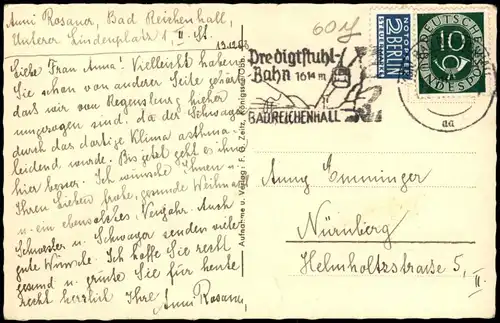 Anni Rosauer, Bad Reichenhall,
Unterer Lindenplatz 1 II. St.
Liebe Frau Anna! Vielleicht haben
Sie schon von anderer Seite gehört,
daß wir von Regensburg hieher
umgezogen sind! da der Schwager
durch das dortige Klima asthma-
leidend wurde. Bis jetzt geht es ihm
hier besser. Ich wünsche Ihnen u.
Ihren Lieben frohe, gesunde Weihnacht
u. ein ebensolches Neujahr. Auch
Schwester u. Schwager senden viele
gute Wünsche. Ich hoffe Sie recht
gesund u. grüße Sie für heute
recht herzlich Ihre Anni Rosauer,
Aufnahme u. Verlag: F. G. Zeitz, Königssee/Obb.
60 Y
Predigtstuhl-
Bahn 1614 m
BAD REICHENHALL
NOTOPFER
2 BERLIN
STEUERMARKE
DEUTSCHE
BUNDESPOST
10
aa
Anny Emminger
Nürnberg
Helmholtzstraße 5,
II.